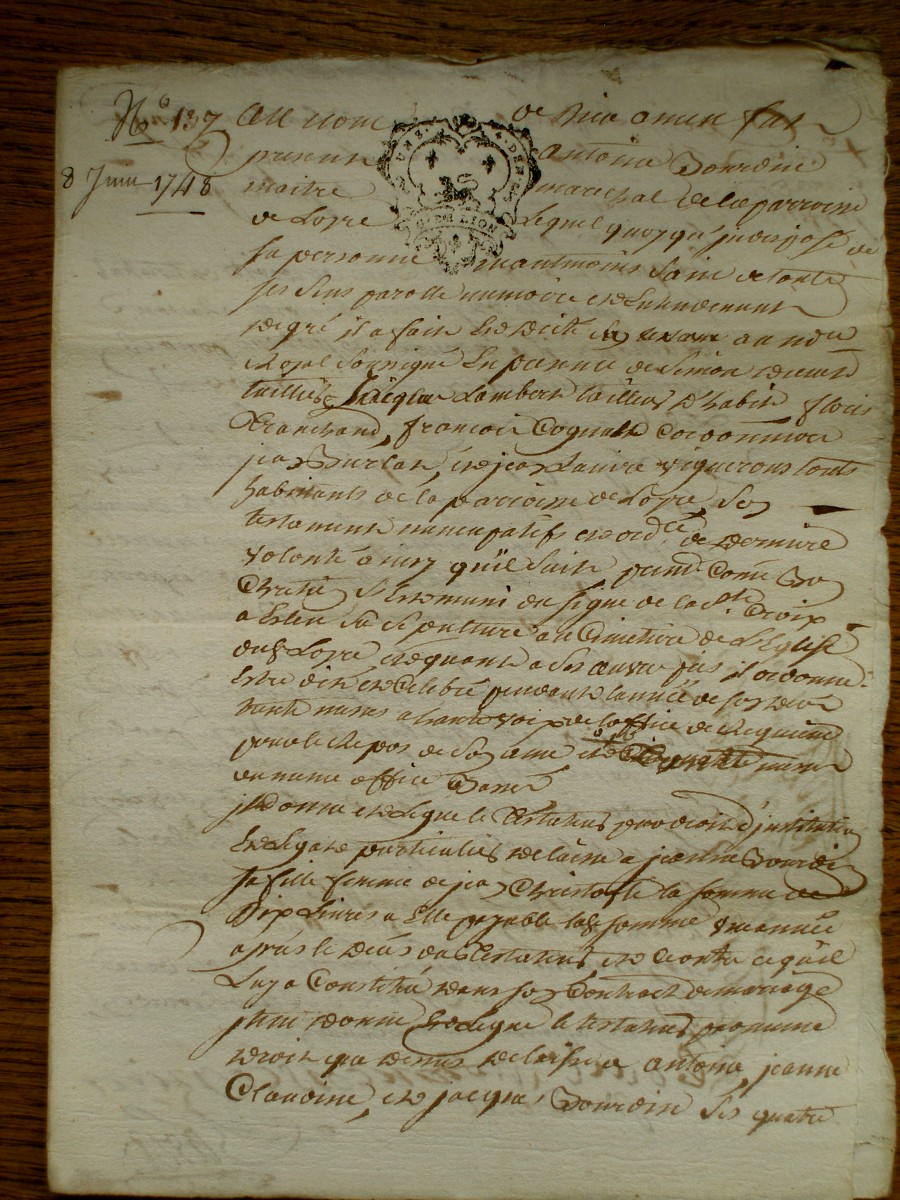 N° 137
8 Juin 1748
Au nom de Dieu amen fut
present antoine Bourdin
maitre marechal de la parroisse
de Loyre Lequel quoyqu'indisposé de
sa personne neantmoins sain de touts
ses sens parolle memoire et Entendement
de gré il a fait et dicté au no.re
Royal soussigné En presence de Simon
taillieur Jacques Lambert taillieur d'habit
françois Coquard Cordonnier
jean Burlat, et jean vignerons touts
habitants de la parroisse de Loyre, son
testament nuncupatif et ord.ce de derniere
volonté ainsy qu'il suit prem.t Come Bon
Chretien s'est muni du signe de la S.te Croix
a Esleu sa sepulture au Cimetiere de L'Eglise
dud Loyre, et quant a ses œuvres pies il ordonne
Estre dit et Celebré pendant l'année de son deces
trente messes a haute voix de l'office de Requiem
pour le Repos de son ame et messes
du meme office Basses
jl donne et legue le Testateur par droit d'institution
et legat particulier delaisse a jeanne Bourdin
sa fille femme de jean Christophle la somme de
Dix Livres a Elle payable lad somme une année
apres le deces du Testateur et c'est outre ce qu'il
Luy a Constitué dans son Contract de mariage
jtem donne et Legue le testateur par meme
droit que dessus delaisse a antoine, jeanne
Claudine, et jacques Bourdin ses quatre